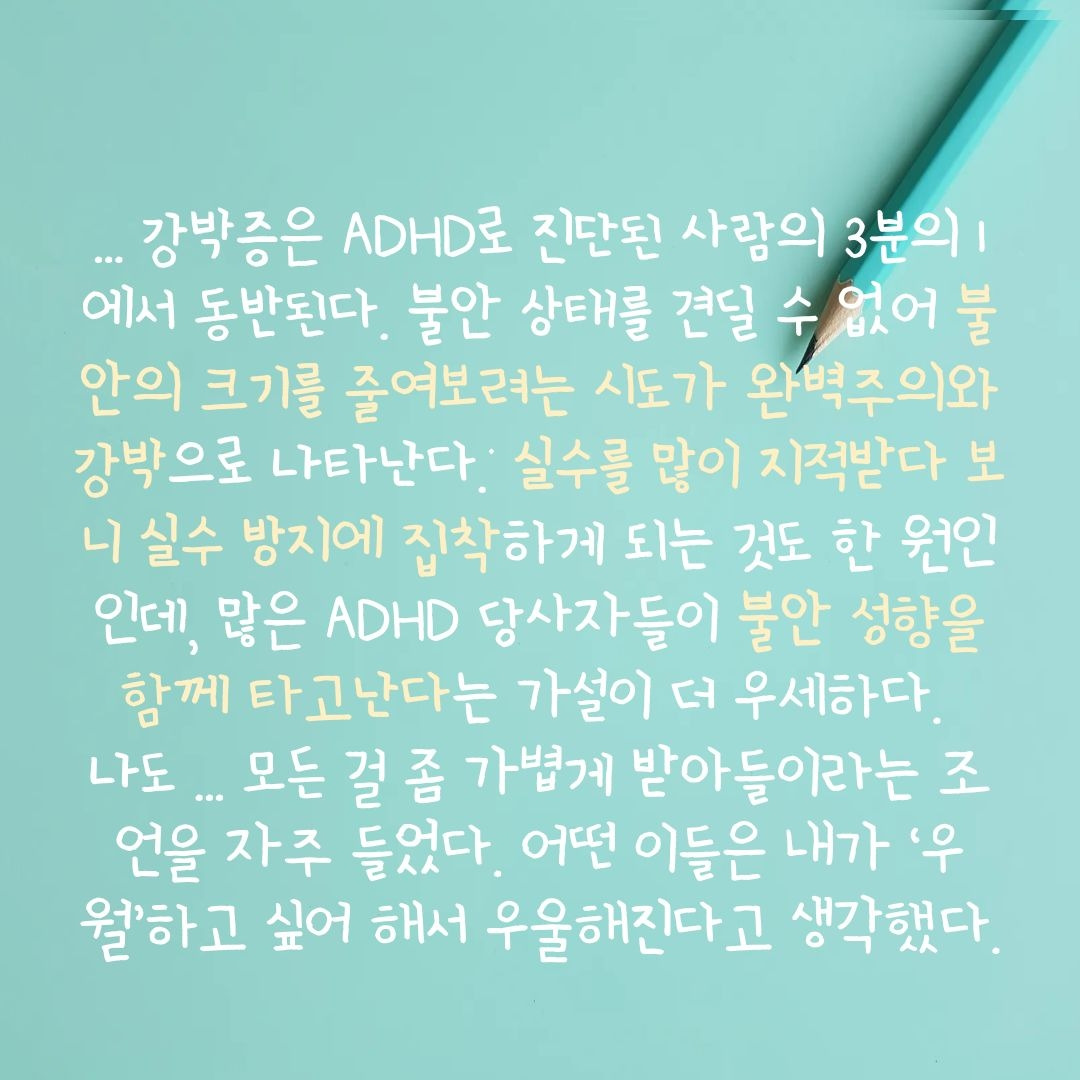 ... 강박증은 ADHD로 진단된 사람의 3분의 1
에서 동반된다. 불안 상태를 견딜 수 없어 불
안의 크기를 줄여보려는 시도가 완벽주의와
강박으로 나타난다. 실수를 많이 지적받다 보
니 실수 방지에 집착하게 되는 것도 한 원인
인데, 많은 ADHD 당사자들이 불안 성향을
함께 타고난다는 가설이 더 우세하다.
나도 ... 모든 걸 좀 가볍게 받아들이라는 조
언을 자주 들었다. 어떤 이들은 내가 ‘우
월’하고 싶어 해서 우울해진다고 생각했다.